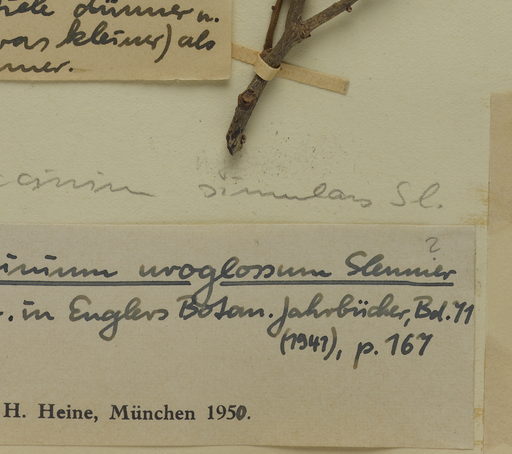 dünner u.
kleiner) als
simulans Sl.
?
uroglossum Sleumer
in Englers Botan. Jahrbücher, Bd. 71
(1941), p. 167
H. Heine, München 1950.